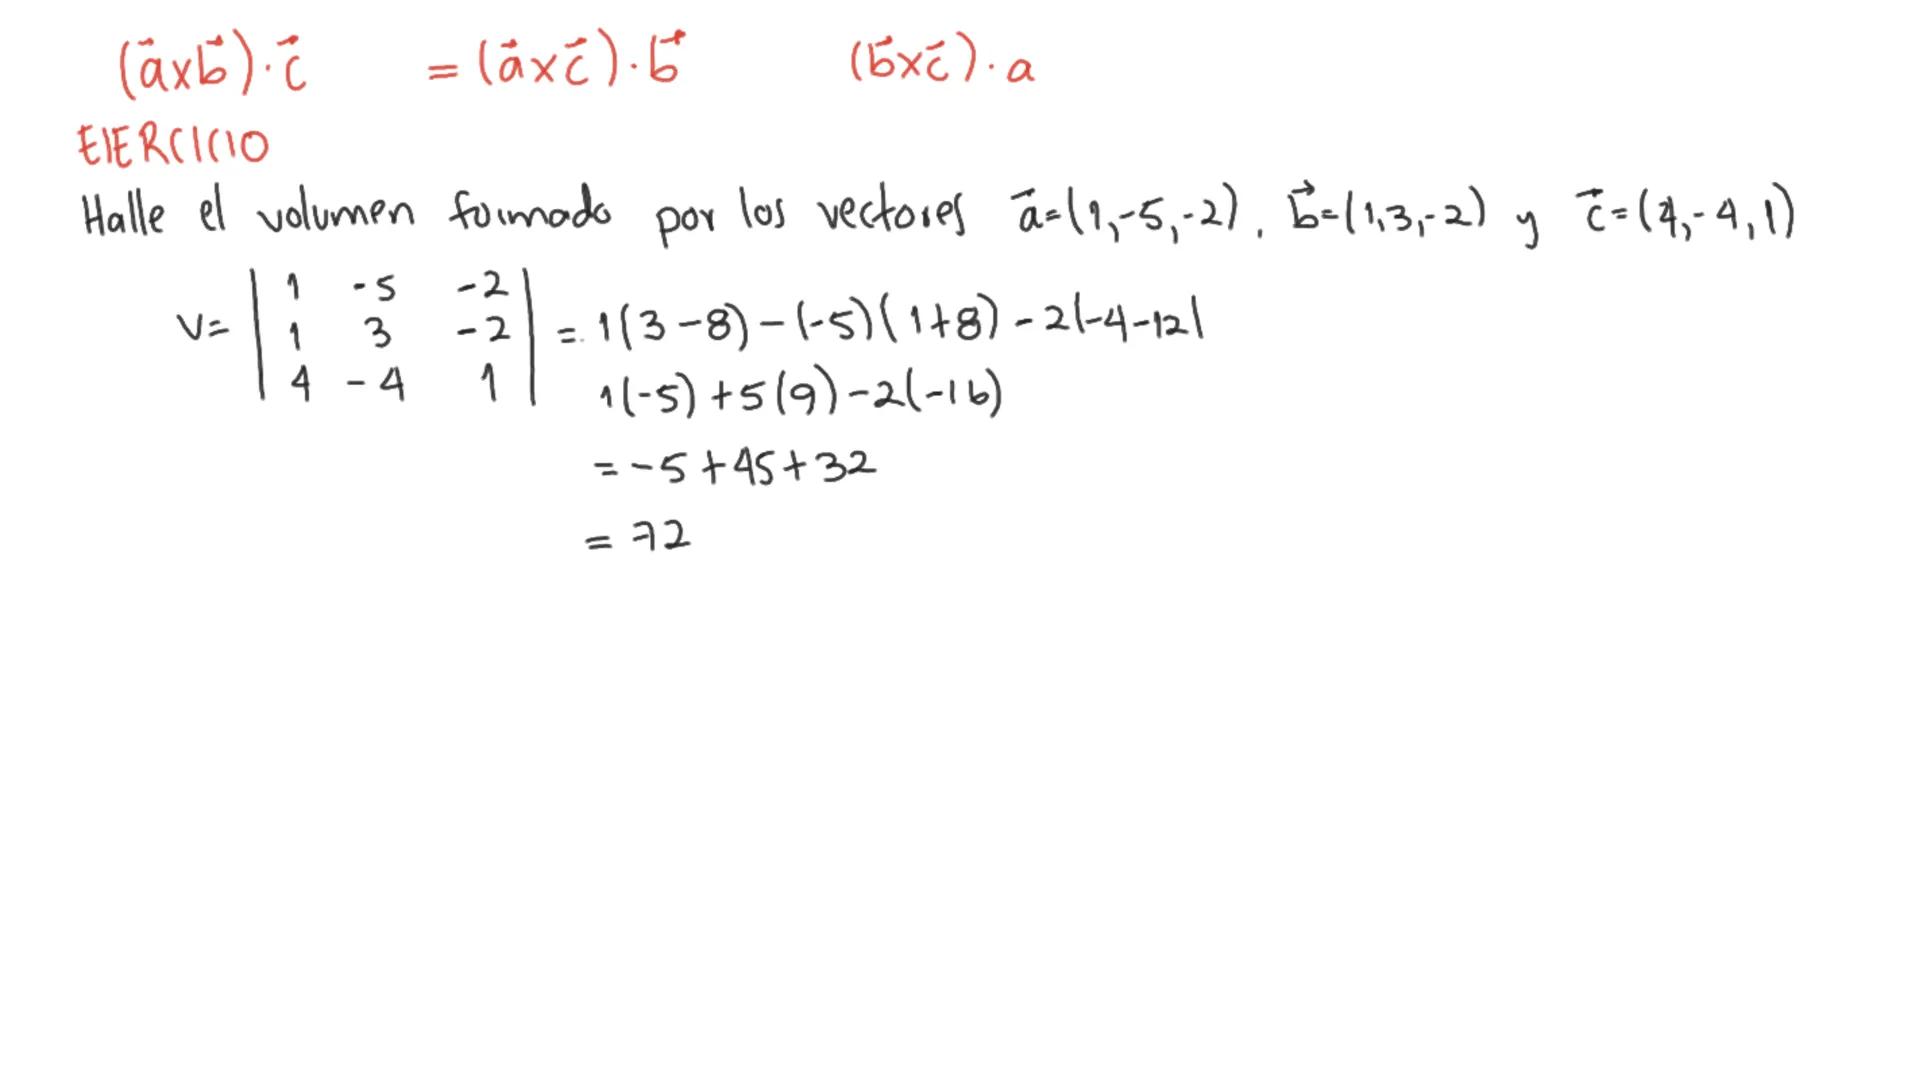 (a⃗xb⃗)·c⃗ = (a⃗xc⃗)·b⃗ (b⃗xc⃗)·a
EJERCICIO
Halle el volumen formado por los vectores a⃗=(1,-5,-2), b⃗=(1,3,-2) y c⃗=(4,-4,1)
V= | 1 -5 -2 |
| 1 3 -2 | = 1(3-8)-(-5)(1+8)-2(-4-12)
| 4 -4 1 | 1(-5)+5(9)-2(-16)
= -5+45+32
= 72